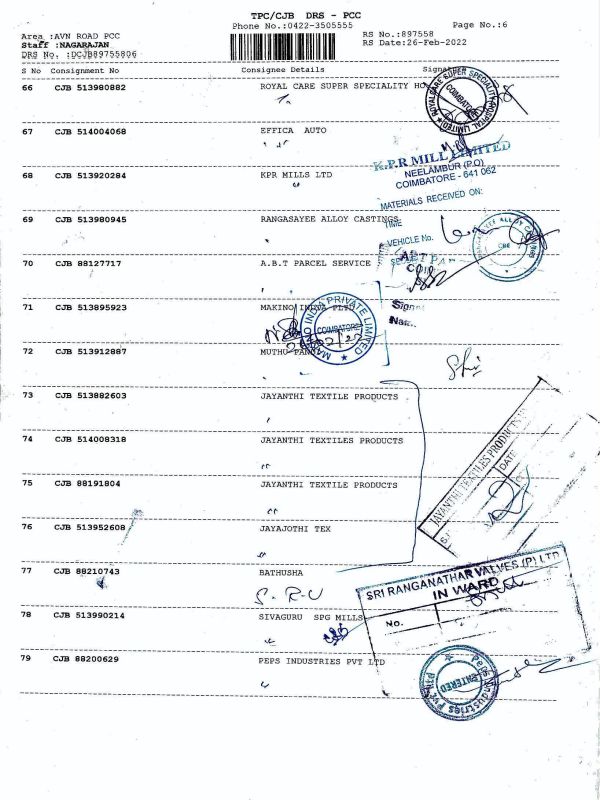 TPC/CJB DRS - PCC
Phone No.:0422-3505555
Page No.:6
Area :AVN ROAD PCC
RS No.:897558
Staff :NAGARAJAN
RS Date:26-Feb-2022
DRS No. :DCJB89755806
S No Consignment No Consignee Details Signat
66 CJB 513980882 ROYAL CARE SUPER SPECIALITY HO
COIMBATORE
67 CJB 514004068 EFFICA AUTO
K.P.R MILL LIMITED
NEELAMBUR (P.O)
COIMBATORE - 641 062
68 CJB 513920284 KPR MILLS LTD
MATERIALS RECEIVED ON:
69 CJB 513980945 RANGASAYEE ALLOY CASTINGS
TIME
VEHICLE No.
RANGASAYEE ALLOY CASTINGS
CBE
70 CJB 88127717 A.B.T PARCEL SERVICE
71 CJB 513895923 MAKINO INDIA PLTD
MAKINO INDIA PRIVATE LIMITED
COIMBATORE
72 CJB 513912887 MUTHU PAND
73 CJB 513882603 JAYANTHI TEXTILE PRODUCTS
74 CJB 514008318 JAYANTHI TEXTILES PRODUCTS
JAYANTHI TEXTILES PRODUCTS
DATE
75 CJB 88191804 JAYANTHI TEXTILE PRODUCTS
76 CJB 513952608 JAYAJOTHI TEX
77 CJB 88210743 BATHUSHA
SRI RANGANATHAR VALVES (P) LTD
IN WARD
NO.
78 CJB 513990214 SIVAGURU SPG MILLS
79 CJB 88200629 PEPS INDUSTRIES PVT LTD
Peps Industries Pvt Ltd
ENTERED